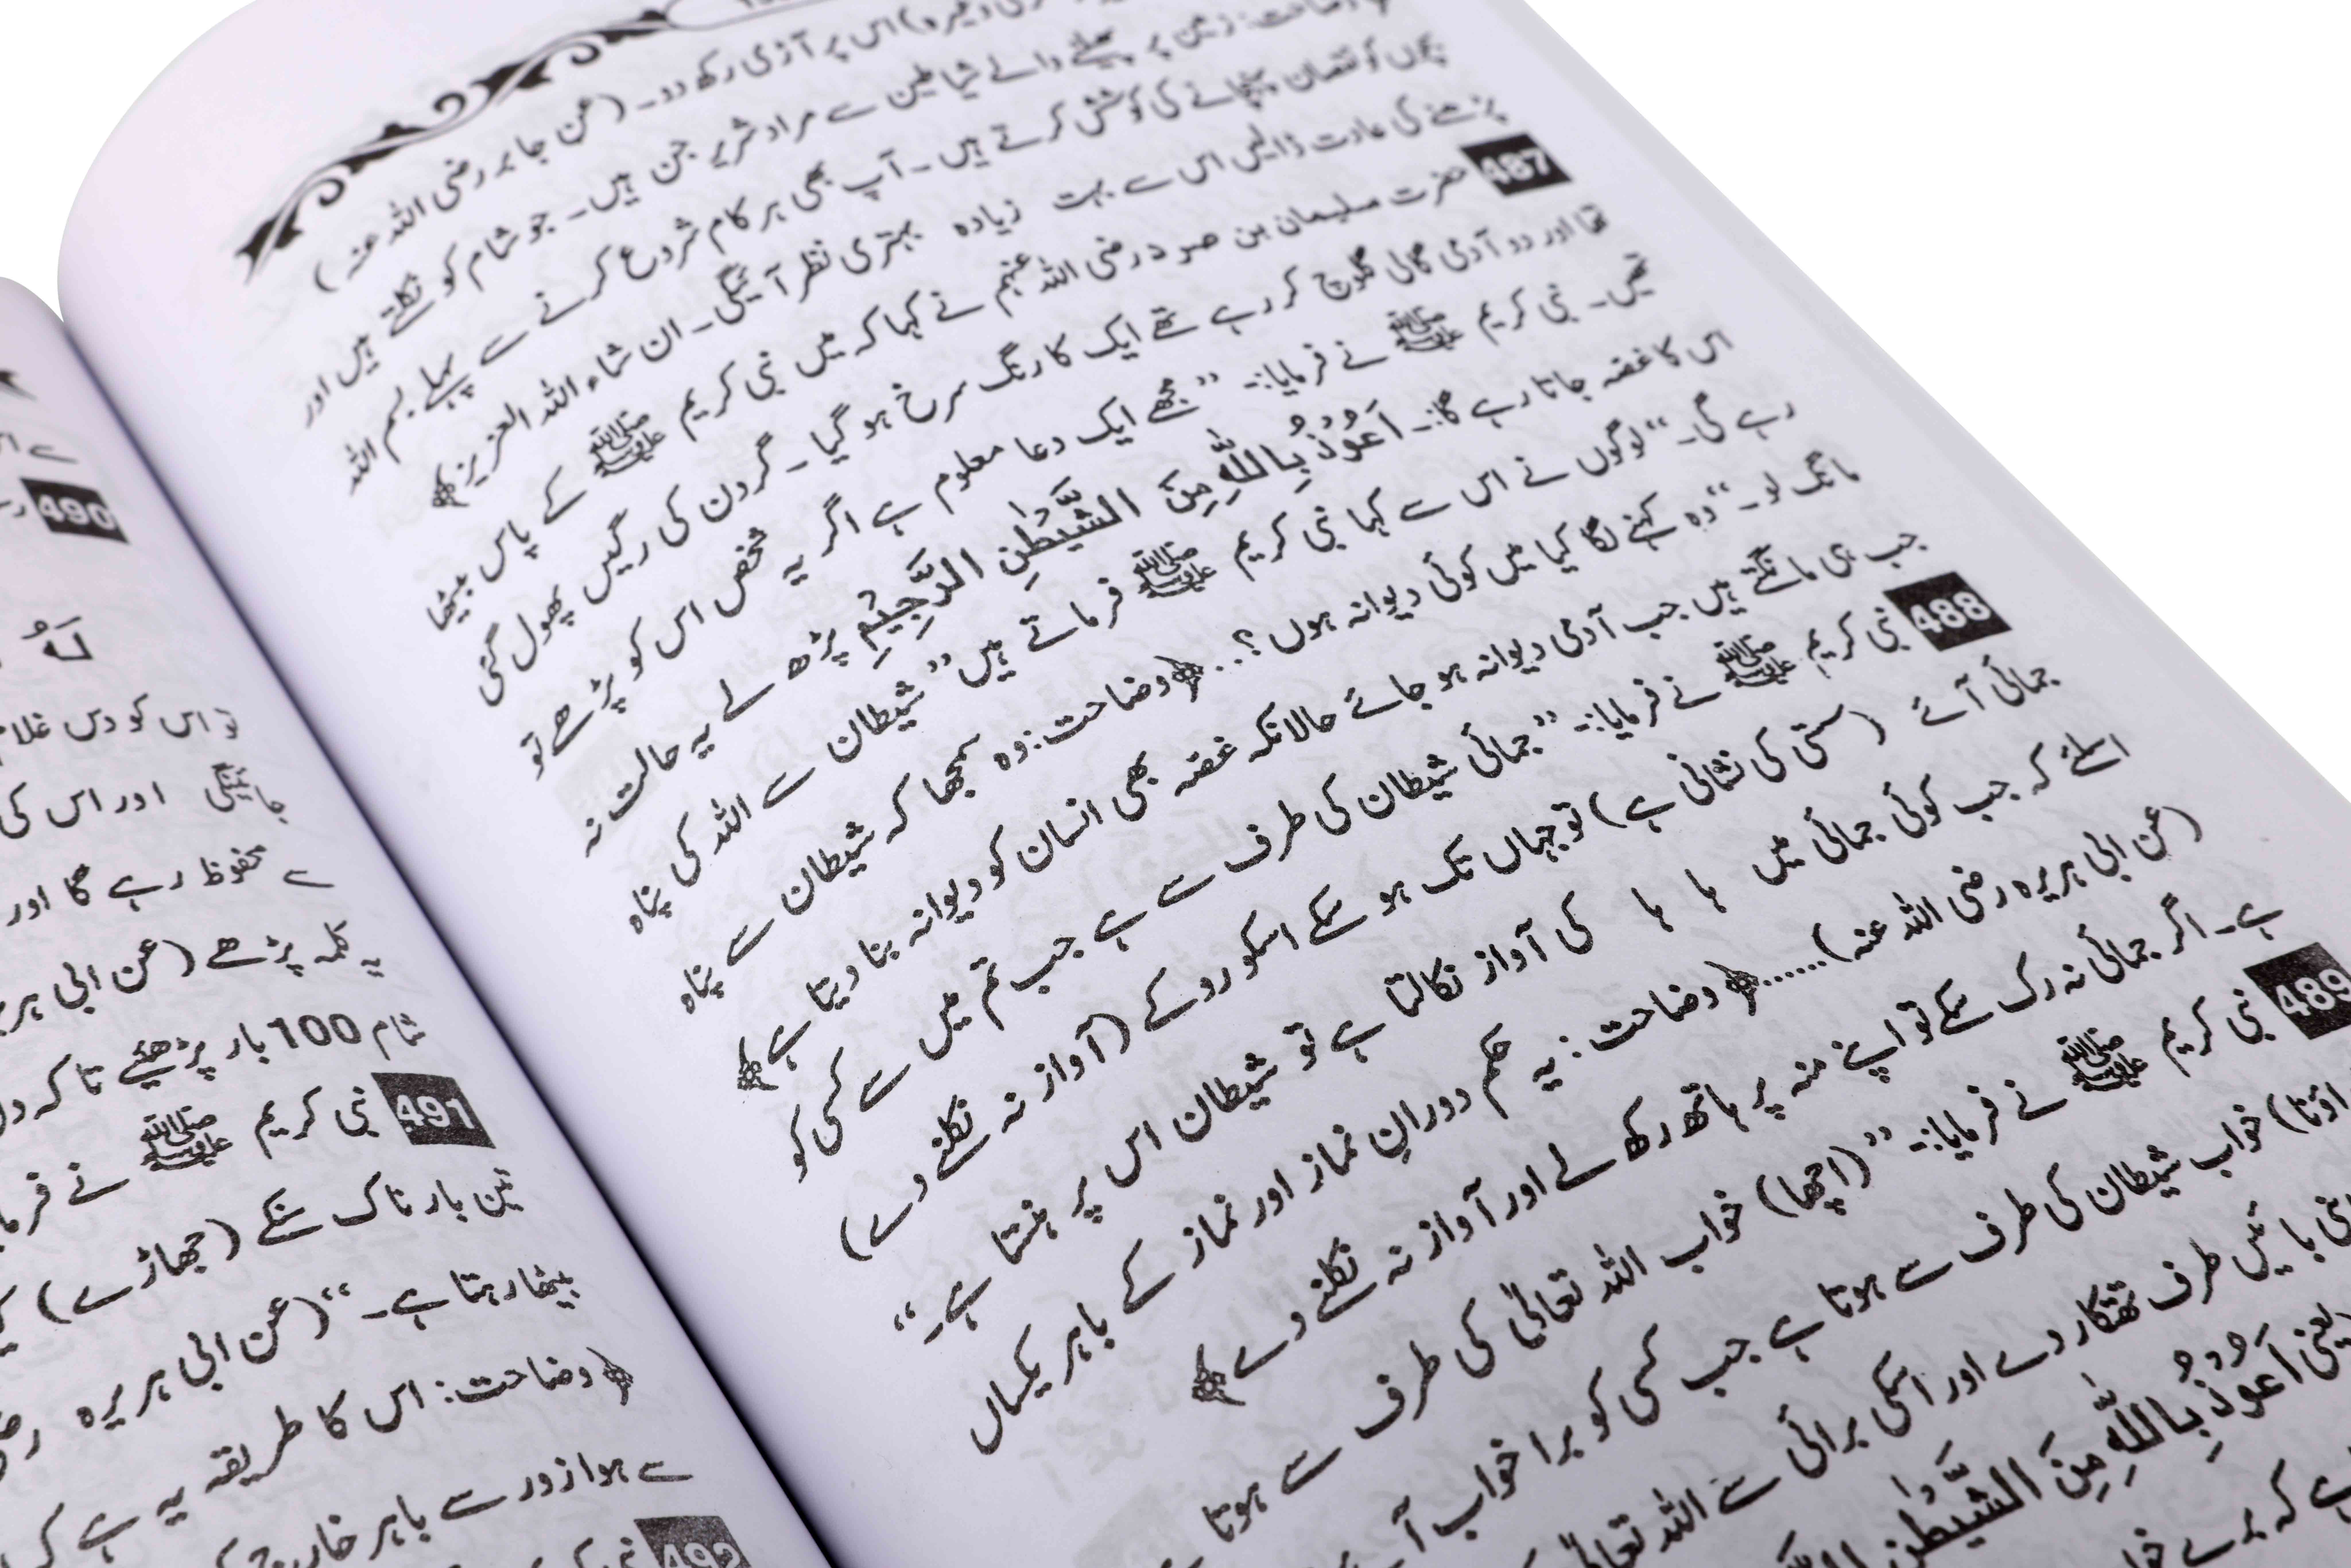 اس پر آڑی رکھ دو۔ (عن جابر رضی اللہ عنہ)
وضاحت: زمین پر پھیلنے والے شیاطین سے مراد شریر جن ہیں۔ جو شام کو نکلتے ہیں اور
بچوں کو نقصان پہنچانے کی کوشش کرتے ہیں۔ آپ بھی ہر کام شروع کرنے سے پہلے بسم اللہ
پڑھنے کی عادت ڈالیں اس سے بہت زیادہ بہتری نظر آئیگی۔ ان شاء اللہ العزیز﴾
487 حضرت سلیمان بن صرد رضی اللہ عنہم نے کہا کہ میں نبی کریم ﷺ کے پاس بیٹھا
تھا اور دو آدمی گالی گلوچ کر رہے تھے ایک کا رنگ سرخ ہو گیا۔ گردن کی رگیں پھول گئی
تھیں۔ نبی کریم ﷺ نے فرمایا:۔ ”مجھے ایک دعا معلوم ہے اگر یہ شخص اس کو پڑھے تو
اس کا غصہ جاتا رہے گا:۔ اَعُوْذُ بِاللّٰهِ مِنَ الشَّيْطٰنِ الرَّجِيْمِ پڑھ لے یہ حالت نہ
رہے گی۔“ لوگوں نے اس سے کہا نبی کریم ﷺ فرماتے ہیں ”شیطان سے اللہ کی پناہ
مانگ لو۔“ وہ کہنے لگا کیا میں کوئی دیوانہ ہوں؟..﴿وضاحت: وہ سمجھا کہ شیطان سے پناہ
جب ہی مانگتے ہیں جب آدمی دیوانہ ہو جائے حالانکہ غصہ بھی انسان کو دیوانہ بنا دیتا ہے﴾
488 نبی کریم ﷺ نے فرمایا:۔ ”جمائی شیطان کی طرف سے ہے جب تم میں سے کسی کو
جمائی آئے (سستی کی نشانی ہے) تو جہاں تک ہو سکے اسکو روکے (آواز نہ نکلنے دے)
اسلئے کہ جب کوئی جمائی میں ہا ہا کی آواز نکالتا ہے تو شیطان اس پر ہنستا ہے۔“
(عن ابی ہریرہ رضی اللہ عنہ)......﴿وضاحت: یہ حکم دورانِ نماز اور نماز کے باہر یکساں
ہے۔ اگر جمائی نہ رک سکے تو اپنے منہ پر ہاتھ رکھ لے اور آواز نہ نکلنے دے﴾
489 نبی کریم ﷺ نے فرمایا:۔ ”(اچھا) خواب اللہ تعالیٰ کی طرف سے ہوتا
خواب شیطان کی طرف سے ہوتا ہے جب کسی کو برا خواب
بائیں طرف تھتکار دے اور اسکی برائی سے اللہ تعالیٰ
یعنی اَعُوْذُ بِاللّٰهِ مِنَ الشَّيْطٰنِ
ہے کہ برے
490
لَهُ
تو اس کو دس غلام
جائینگی اور اس کی
سے محفوظ رہے گا اور
یہ کلمہ پڑھے (عن ابی
شام 100 بار پڑھیئے تا کہ
491 نبی کریم ﷺ نے
تین بار ناک سنکے (جھاڑے)
بیٹھا رہتا ہے۔“ (عن ابی ہریرہ
﴿وضاحت: اس کا طریقہ یہ ہے
سے ہوا زور سے باہر
492